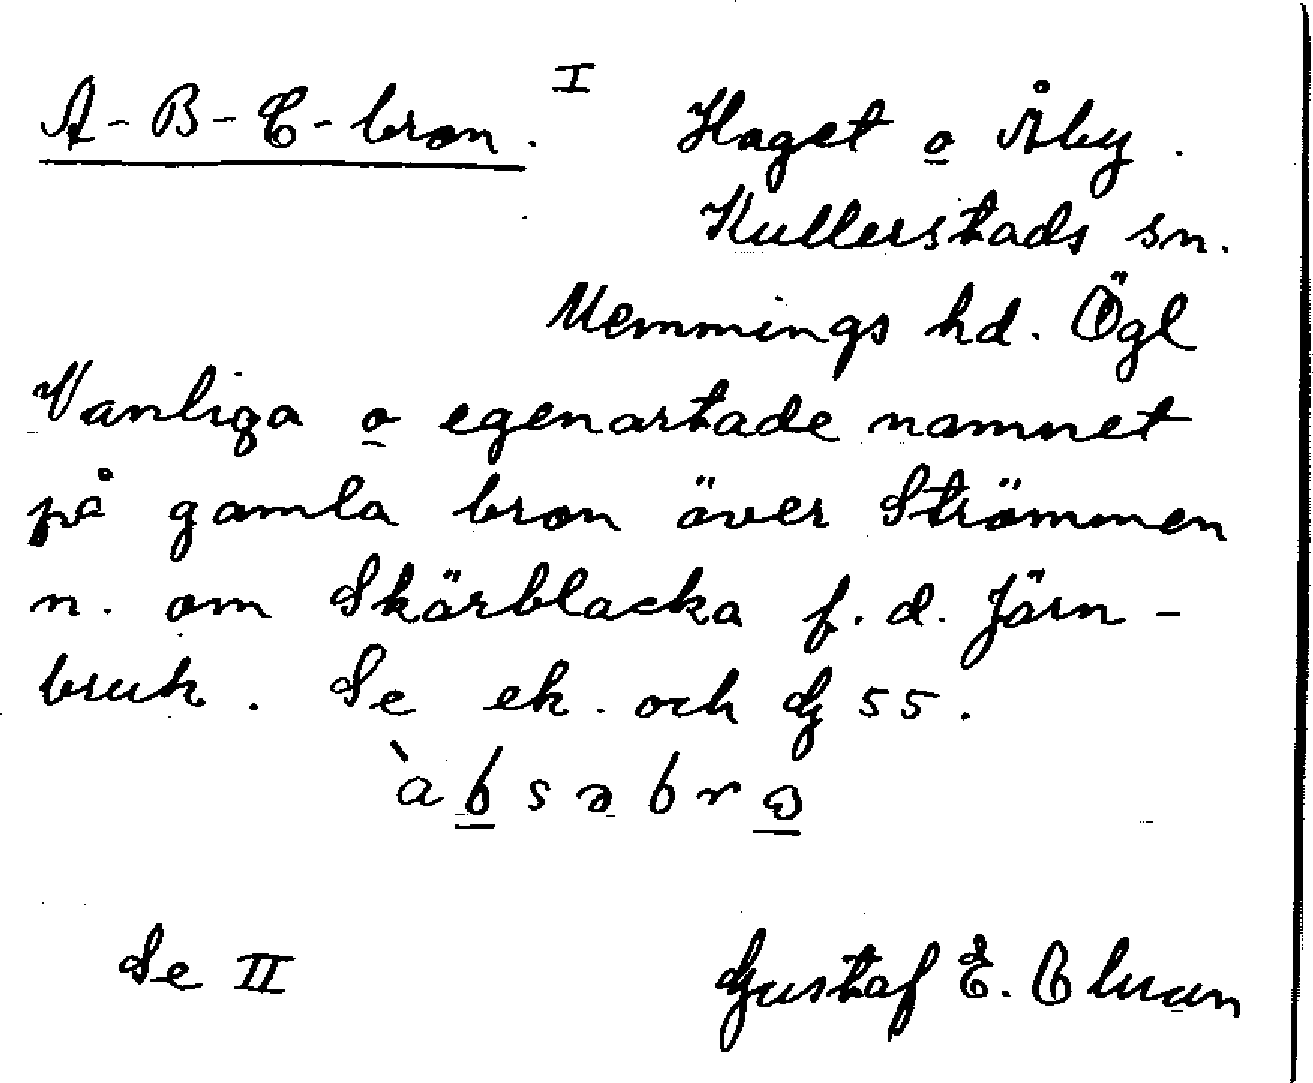 A-B-C-bron. I Haget o Åby.
Kullerstads sn.
Memmings hd. Ögl
Vanliga o egenartade namnet
på gamla bron över Strömmen
n. om Skärblacka f.d. Järn-
bruk. Se ek. och G 55.
Se II Gustaf E.